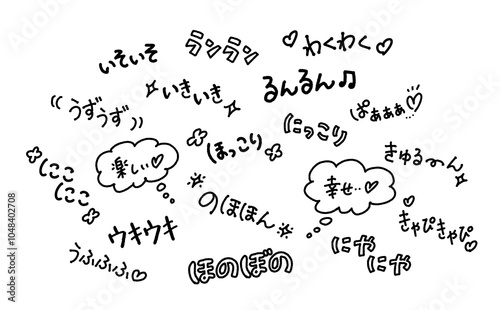 いそいそ
ランラン
♡わくわく♡
るんるん♫
うずうず
いきいき
ぱぁぁぁ♡
にこにこ
楽しい♡
ほっこり
にっこり
きゅる〜ん
のほほん
幸せ…♡
きゃぴきゃぴ♡
ウキウキ
うふふふ♡
ほのぼの
にやにや
Adobe Stock | #1048402708